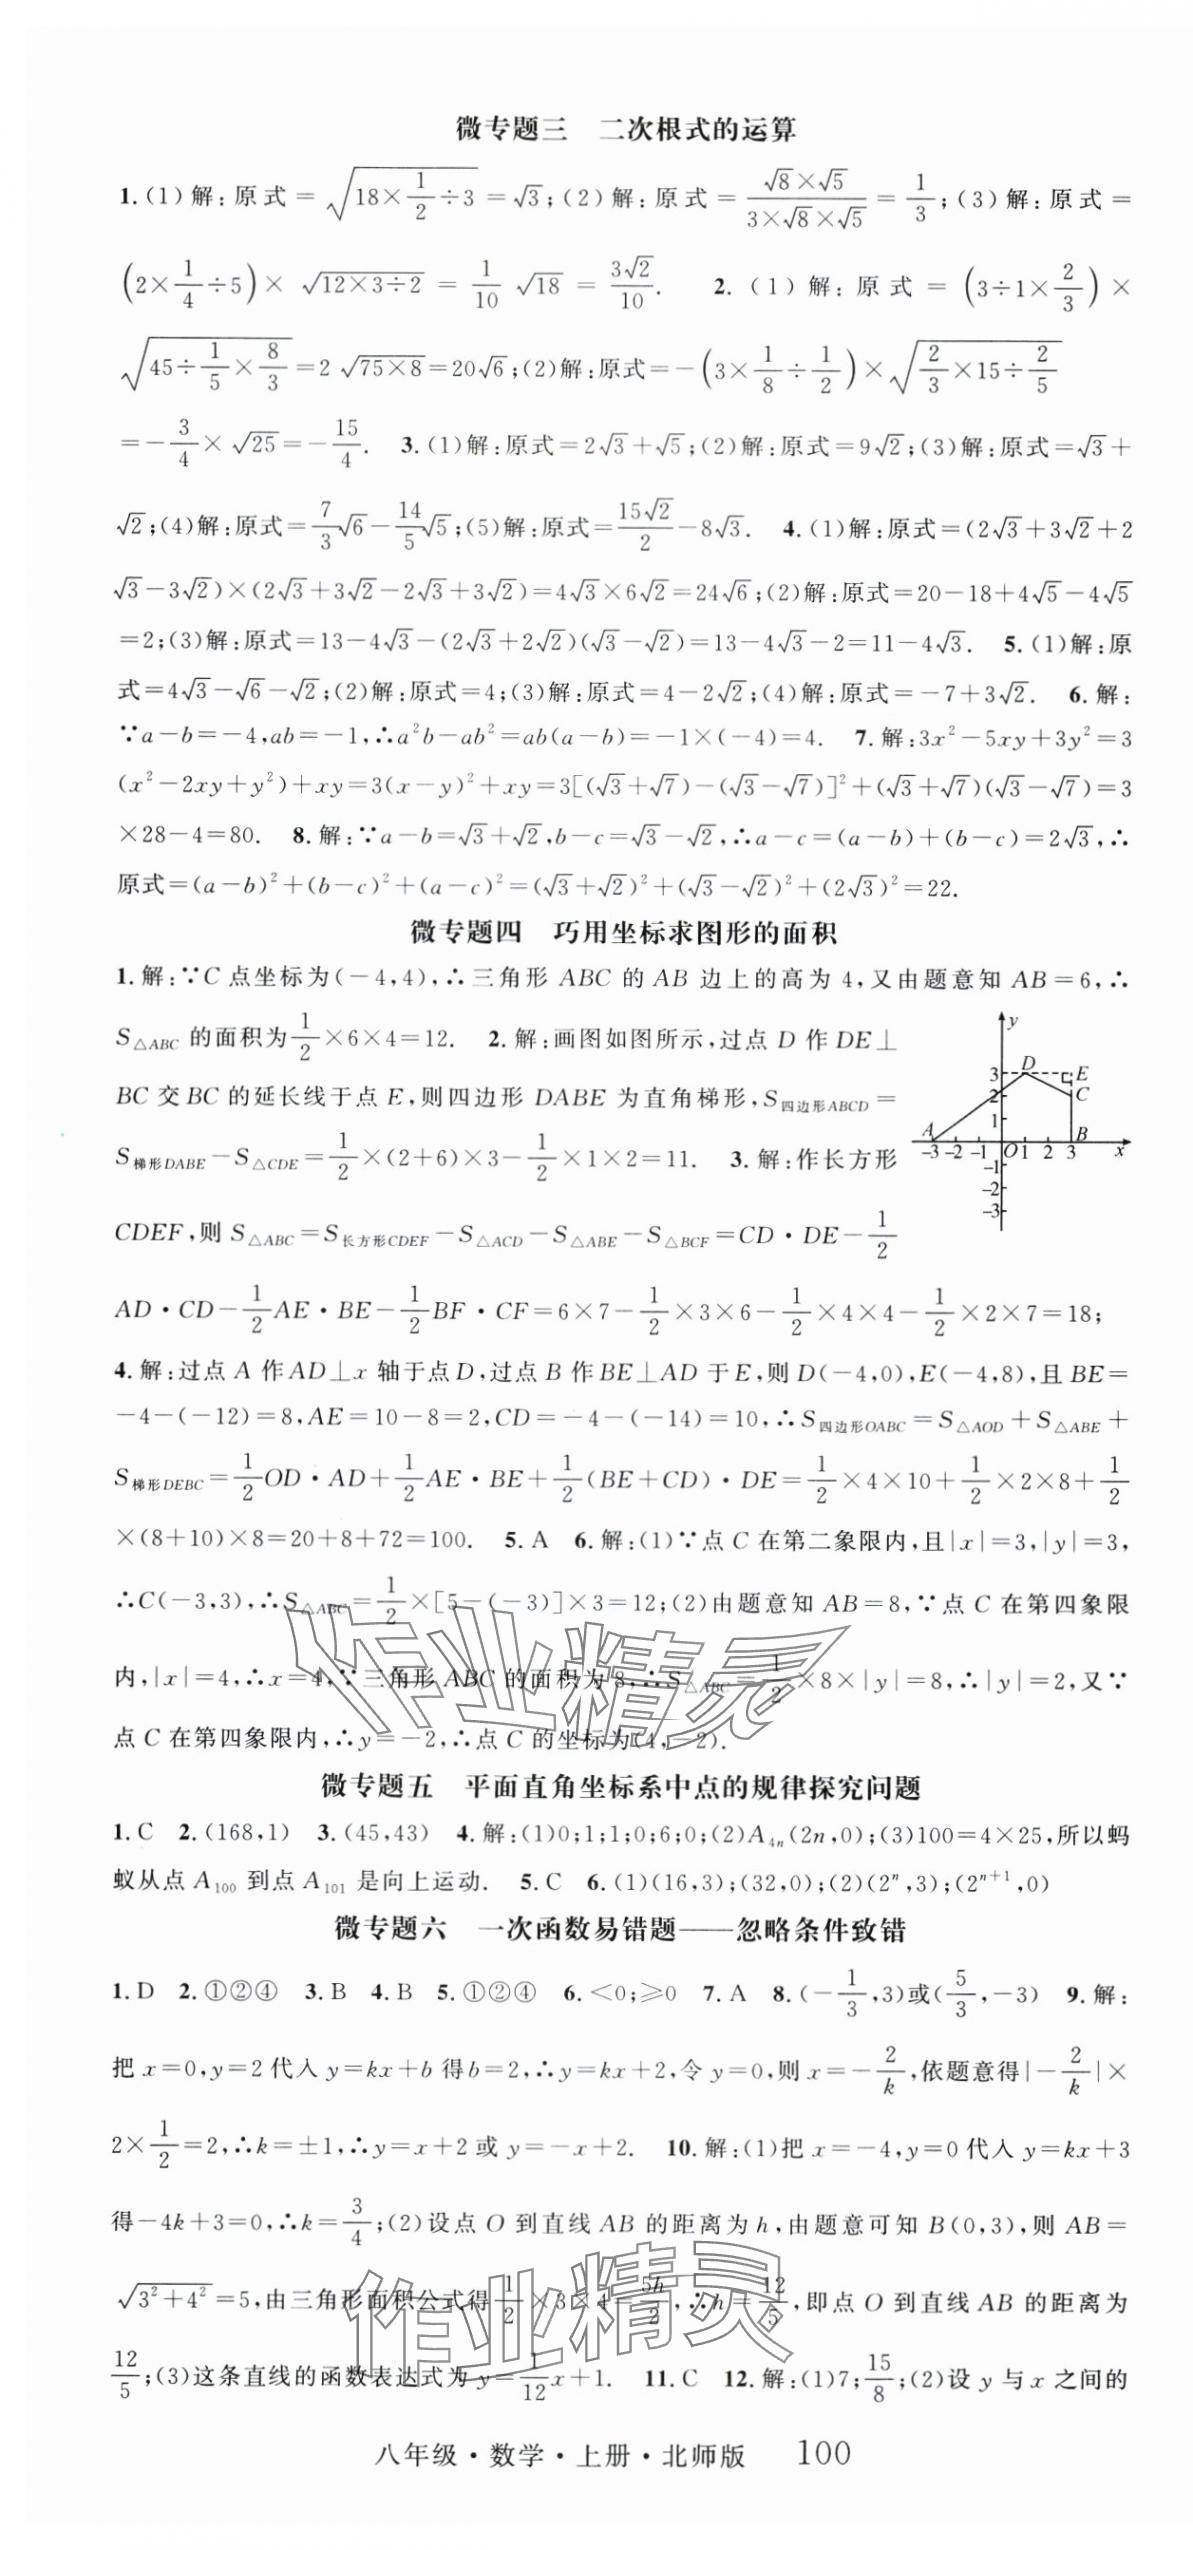 微专题三 二次根式的运算
1.(1)解:原式=√(18×1/2÷3)=√3;(2)解:原式=(√8×√5)/(3×√8×√5)=1/3;(3)解:原式=
(2×1/4÷5)×√(12×3÷2)=1/10 √18=3√2/10. 2.(1)解:原式=(3÷1×2/3)×
√(45÷1/5×8/3)=2√(75×8)=20√6;(2)解:原式=-(3×1/8÷1/2)×√(2/3×15÷2/5)
=-3/4×√25=-15/4. 3.(1)解:原式=2√3+√5;(2)解:原式=9√2;(3)解:原式=√3+
√2;(4)解:原式=7/3√6-14/5√5;(5)解:原式=15√2/2-8√3. 4.(1)解:原式=(2√3+3√2+2
√3-3√2)×(2√3+3√2-2√3+3√2)=4√3×6√2=24√6;(2)解:原式=20-18+4√5-4√5
=2;(3)解:原式=13-4√3-(2√3+2√2)(√3-√2)=13-4√3-2=11-4√3. 5.(1)解:原
式=4√3-√6-√2;(2)解:原式=4;(3)解:原式=4-2√2;(4)解:原式=-7+3√2. 6.解:
∵a-b=-4,ab=-1,∴a²b-ab²=ab(a-b)=-1×(-4)=4. 7.解:3x²-5xy+3y²=3
(x²-2xy+y²)+xy=3(x-y)²+xy=3[(√3+√7)-(√3-√7)]²+(√3+√7)(√3-√7)=3
×28-4=80. 8.解:∵a-b=√3+√2,b-c=√3-√2,∴a-c=(a-b)+(b-c)=2√3,∴
原式=(a-b)²+(b-c)²+(a-c)²=(√3+√2)²+(√3-√2)²+(2√3)²=22.
微专题四 巧用坐标求图形的面积
1.解:∵C点坐标为(-4,4),∴三角形ABC的AB边上的高为4,又由题意知AB=6,∴
S△ABC的面积为1/2×6×4=12. 2.解:画图如图所示,过点D作DE⊥
BC交BC的延长线于点E,则四边形DABE为直角梯形,S四边形ABCD=
S梯形DABE-S△CDE=1/2×(2+6)×3-1/2×1×2=11. 3.解:作长方形
CDEF,则S△ABC=S长方形CDEF-S△ACD-S△ABE-S△BCF=CD·DE-1/2
y
3 D E
2 C
1
A B
-3 -2 -1 O 1 2 3 x
-1
-2
-3
AD·CD-1/2AE·BE-1/2BF·CF=6×7-1/2×3×6-1/2×4×4-1/2×2×7=18;
4.解:过点A作AD⊥x轴于点D,过点B作BE⊥AD于E,则D(-4,0),E(-4,8),且BE=
-4-(-12)=8,AE=10-8=2,CD=-4-(-14)=10,∴S四边形OABC=S△AOD+S△ABE+
S梯形DEBC=1/2OD·AD+1/2AE·BE+1/2(BE+CD)·DE=1/2×4×10+1/2×2×8+1/2
×(8+10)×8=20+8+72=100. 5.A 6.解:(1)∵点C在第二象限内,且|x|=3,|y|=3,
∴C(-3,3),∴S△ABC=1/2×[5-(-3)]×3=12;(2)由题意知AB=8,∵点C在第四象限
内,|x|=4,∴x=4,∵三角形ABC的面积为8,∴S△ABC=1/2×8×|y|=8,∴|y|=2,又∵
点C在第四象限内,∴y=-2,∴点C的坐标为(4,-2).
作业精灵
微专题五 平面直角坐标系中点的规律探究问题
1.C 2.(168,1) 3.(45,43) 4.解:(1)0;1;1;0;6;0;(2)A₄ₙ(2n,0);(3)100=4×25,所以蚂
蚁从点A₁₀₀到点A₁₀₁是向上运动. 5.C 6.(1)(16,3);(32,0);(2)(2ⁿ,3);(2ⁿ⁺¹,0)
微专题六 一次函数易错题——忽略条件致错
1.D 2.①②④ 3.B 4.B 5.①②④ 6.<0;≥0 7.A 8.(-1/3,3)或(5/3,-3) 9.解:
把x=0,y=2代入y=kx+b得b=2,∴y=kx+2,令y=0,则x=-2/k,依题意得|-2/k|×
2×1/2=2,∴k=±1,∴y=x+2或y=-x+2. 10.解:(1)把x=-4,y=0代入y=kx+3
得-4k+3=0,∴k=3/4;(2)设点O到直线AB的距离为h,由题意可知B(0,3),则AB=
√(3²+4²)=5,由三角形面积公式得1/2×3×4=5h/2,∴h=12/5,即点O到直线AB的距离为
12/5;(3)这条直线的函数表达式为y=1/12x+1. 11.C 12.解:(1)7;15/8;(2)设y与x之间的
作业精灵
八年级·数学·上册·北师版 100